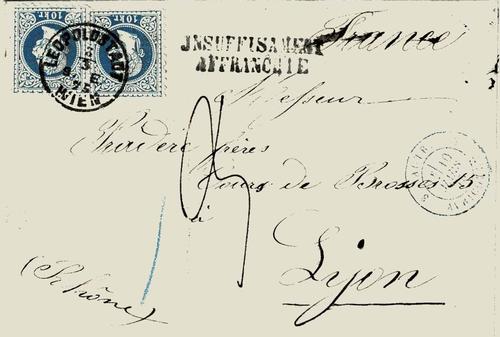 10 kr. 10 kr.
LEOPOLDSTADT
WIEN
INSUFFISAMENT
AFFRANCHIE
France
Messieurs
frères
Cours de Brosses 15
à
Lyon
(Rhône)